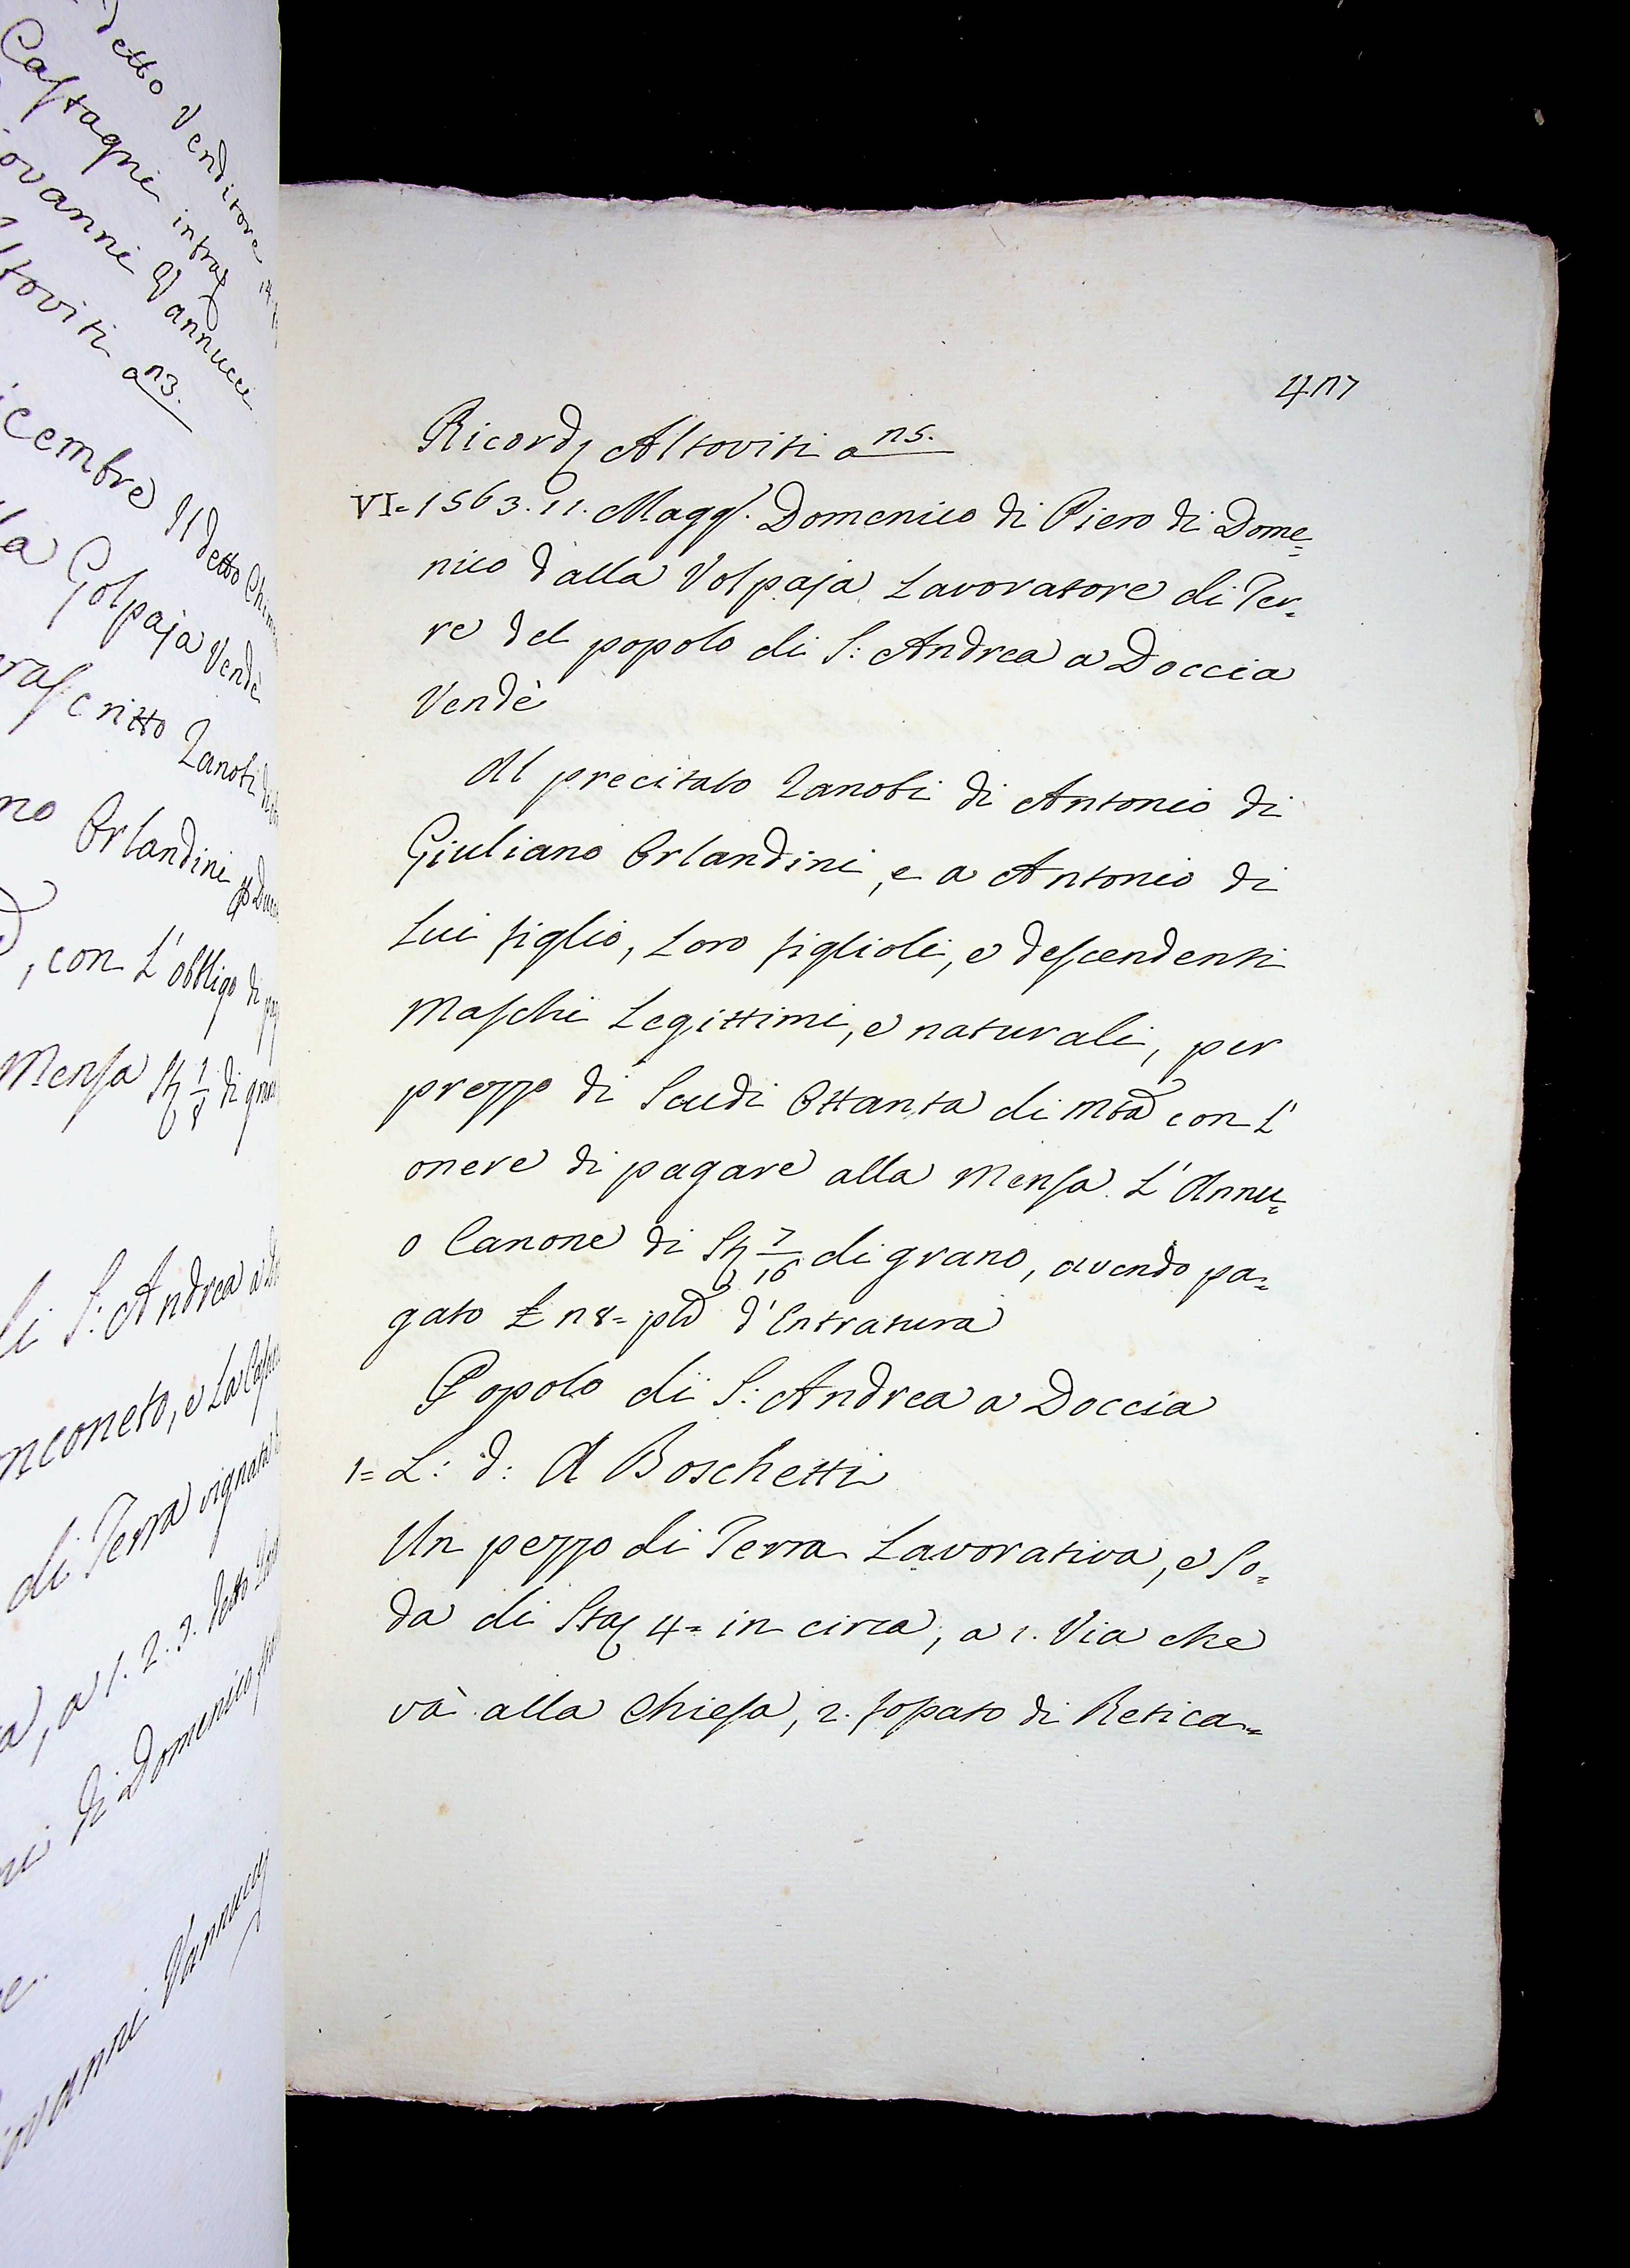 detto Venditore
Castagni infras
ovanni Vannucci
ltoviti a 173.
icembre Il detto
la Golpaja Vendè
rascritto Zanobi
no Orlandini
, con L' obbligo di
Mensa St 1/8 di gra
li S: Andrea a
nconeto, e La
di Terra vignata
a, a 1. 2. 3. detto
ni di Domenico
e.
iovanni Vannucci
477
Ricord Altoviti a 175.
VI= 1563. 11. Magg. Domenico di Piero di Dome=
nico dalla Volpaja Lavoratore di Ter=
re del popolo di S: Andrea a Doccia
Vendè
Al precitato Zanobi di Antonio di
Giuliano Orlandini, e a Antonio di
Lui figlio, Loro figlioli, e descendenti
Maschi Legittimi, e naturali, per
prezzo di Scudi Ottanta di mta con L'
onere di pagare alla Mensa L' Annu=
o Canone di St 7/16 di grano, avendo pa=
gato £ 78= p d' Entratura
Popolo di S: Andrea a Doccia
1= L: d: A Boschetti
Un pezzo di Terra Lavorativa, e So=
da di Sta 4= in circa, a 1. Via che
và alla Chiesa, 2. fossato di Retica=